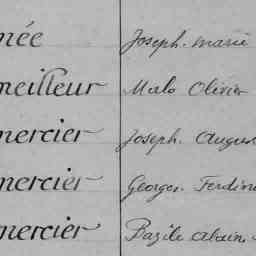 née Joseph. marie
meilleur Malo Olivier
mercier Joseph. August
mercier Georges. Ferdin
mercier Bazile alain